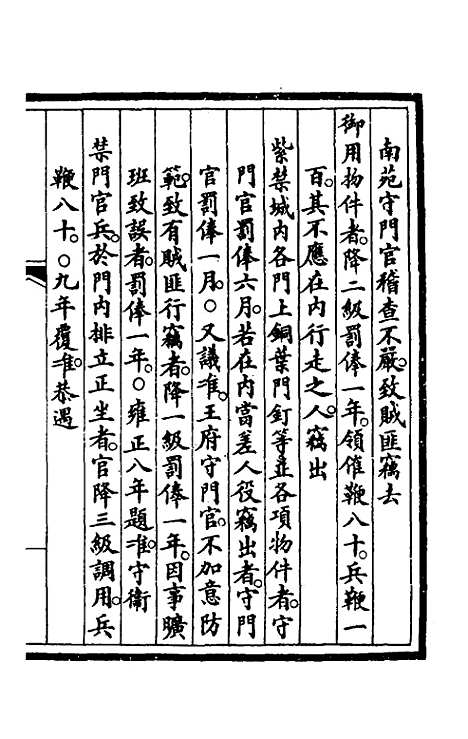 南苑守門官稽查不嚴。致賊匪竊去
御用物件者。降二級罰俸一年。領催鞭八十。兵鞭一
百。其不應在內行走之人。竊出
紫禁城內各門上銅葉門釘等並各項物件者。守
門官罰俸六月。若在內當差人役竊出者。守門
官罰俸一月。○又議准。王府守門官。不加意防
範。致有賊匪行竊者。降一級罰俸一年。因事曠
班致誤者。罰俸一年。○雍正八年題准。守衛
禁門官兵。於門內排立正坐者。官降三級調用。兵
鞭八十。○九年覆准。恭遇